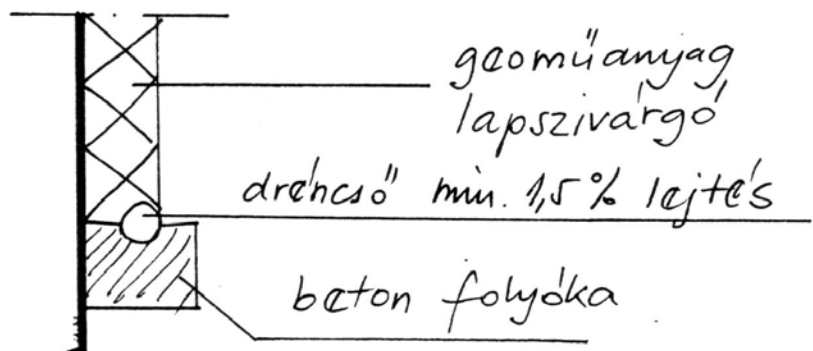 geoműanyag
lapszivárgó
dréncső min. 1,5% lejtés
beton folyóka